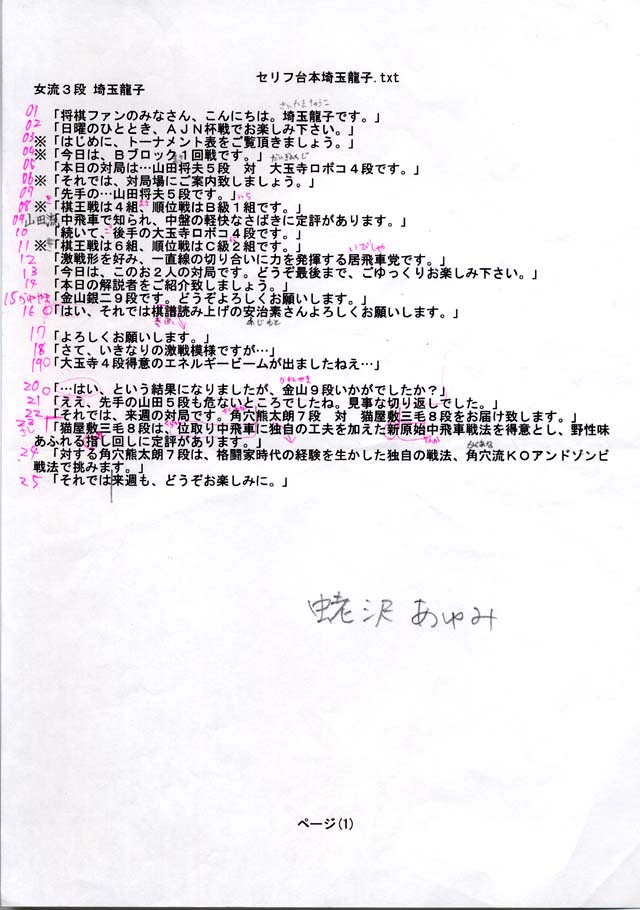 セリフ台本埼玉龍子.txt
女流３段 埼玉龍子
さいたまりゅうこ
01 「将棋ファンのみなさん、こんにちは。埼玉龍子です。」
02 「日曜のひととき、ＡＪＮ杯戦でお楽しみ下さい。」
03 ※「はじめに、トーナメント表をご覧頂きましょう。」
04 ※「今日は、Ｂブロック１回戦です。」
だいぎょくじ
05 「本日の対局は…山田将夫５段　対　大玉寺ロボコ４段です。」
06 ※「それでは、対局場にご案内致しましょう。」
07 「先手の…山田将夫５段です。」
08 ※「棋王戦は４組、順位戦はＢ級１組です。」
いち
09 「中飛車で知られ、中盤の軽快なさばきに定評があります。」
10 「続いて、後手の大玉寺ロボコ４段です。」
11 ※「棋王戦は６組、順位戦はＣ級２組です。」
いびしゃ
12 「激戦形を好み、一直線の切り合いに力を発揮する居飛車党です。」
13 「今日は、このお２人の対局です。どうぞ最後まで、ごゆっくりお楽しみ下さい。」
14 「本日の解説者をご紹介致しましょう。」
15 かねやま 「金山銀二９段です。どうぞよろしくお願いします。」
16 ○ 「はい、それでは棋譜読み上げの安治素さんよろしくお願いします。」
きふ
あじもと
17 「よろしくお願いします。」
18 「さて、いきなりの激戦模様ですが…」
19 ○ 「大玉寺４段得意のエネルギービームが出ましたねえ…」
かねやま
20 ○ 「…はい、という結果になりましたが、金山９段いかがでしたか？」
21 「ええ、先手の山田５段も危ないところでしたね。見事な切り返しでした。」
22 「それでは、来週の対局です。角穴熊太朗７段　対　猫屋敷三毛８段をお届け致します。」
23 「猫屋敷三毛８段は、位取り中飛車に独自の工夫を加えた新原始中飛車戦法を得意とし、野性味
あふれる指し回しに定評があります。」
かくあな
24 「対する角穴熊太朗７段は、格闘家時代の経験を生かした独自の戦法、角穴流ＫＯアンドゾンビ
戦法で挑みます。」
25 「それでは来週も、どうぞお楽しみに。」
蛯沢 あゆみ
ページ(1)